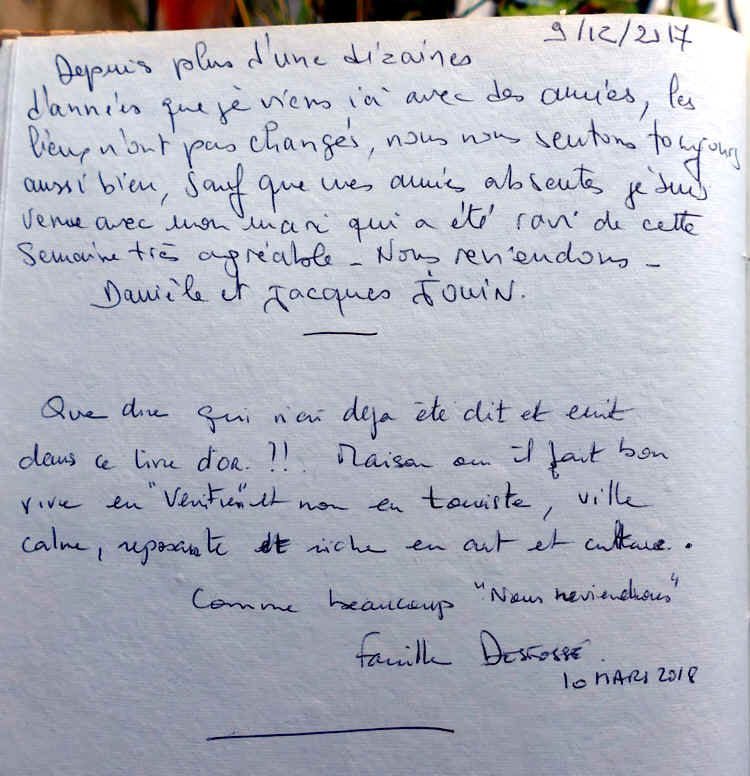 9/12/2017
Depuis plus d'une dizaines
d'années que je viens ici avec des amies, les
lieux n'ont pas changés, nous nous sentons toujours
aussi bien, sauf que mes amies absentes je suis
venue avec mon mari qui a été ravi de cette
semaine très agréable - Nous reviendons -
Danièle et Jacques Jouin.
Que dire qui n'ai deja été dit et écrit
dans ce livre d'or. ?!! Maison ou il fait bon
vivre en "Venitien" et non en touriste, ville
calme, reposante et riche en art et culture.
Comme beaucoup "Nous reviendrons"
famille DESFOSSÉ.
10 MARS 2018